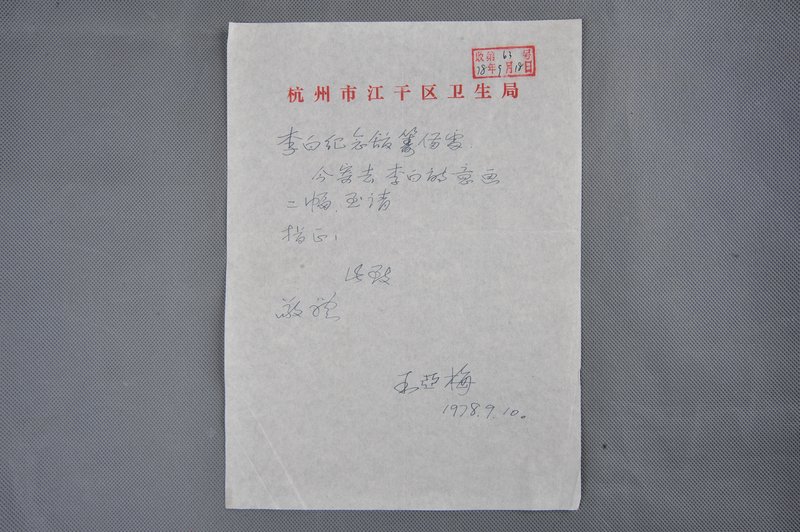 收第63号
78年9月18日
杭州市江干区卫生局
李白纪念馆筹备处
今寄去李白诗意画
三幅,至请
指正!
此致
敬礼
王亞梅
1978.9.10。